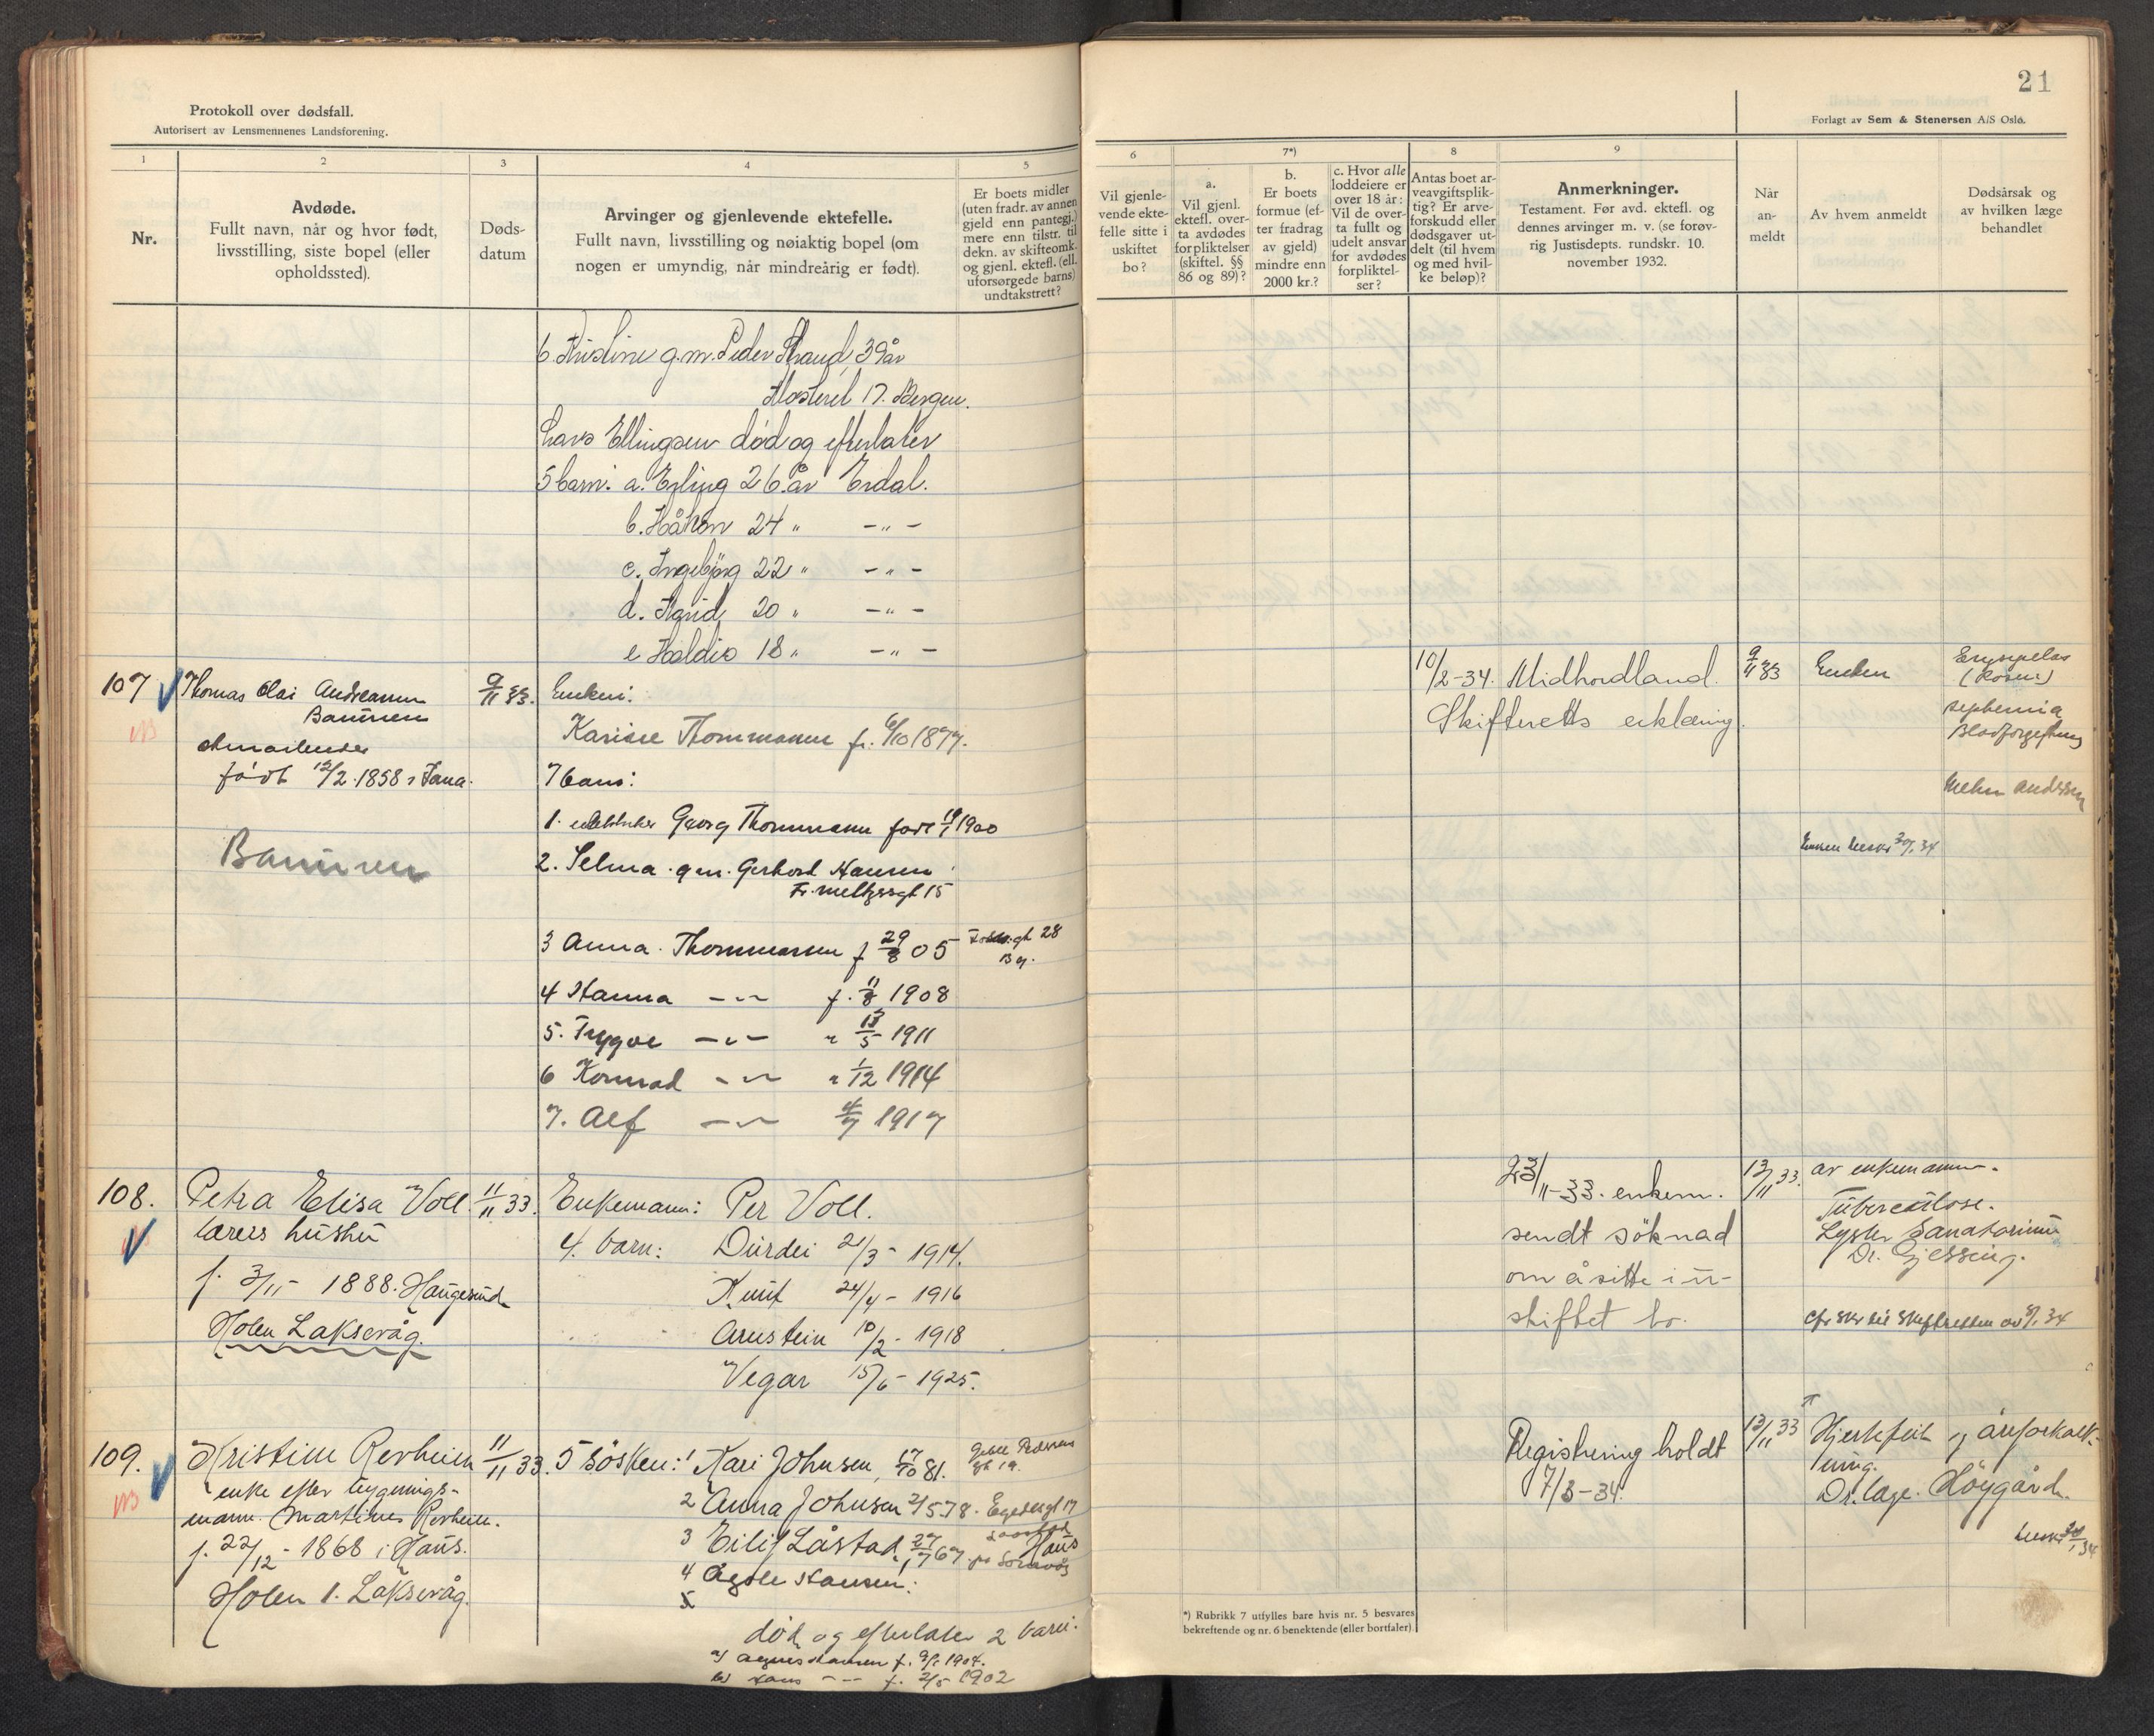 Protokoll over dødsfall.
Autorisert av Lensmennenes Landsforening.
1
2
3
4
5
Nr.
Avdøde.
Fullt navn, når og hvor født,
livsstilling, siste bopel (eller
opholdssted).
Døds-
datum
Arvinger og gjenlevende ektefelle.
Fullt navn, livsstilling og nøiaktig bopel (om
nogen er umyndig, når mindreårig er født).
Er boets midler
(uten fradr. av annen
gjeld enn pantegj.)
mere enn tilstr. til
dekn. av skifteomk.
og gjenl. ektefl. (ell.
uforsørgede barns)
undtakstrett?
6. Kristine g.m. Peder Strand, 39 år
17. Bergen.
Lars Ellingsen død og efterlater
5 barn: a. Erling 26 år Erdal.
b. Håkon 24 " -"-
c. Ingebjörg 22 " -"-
d. 20 " -"-
e 18 " -"-
107
Thomas Olai Andreassen
født 12/2 1858 i
9/11 33.
Enken:
Thommassen f. 6/10 1877.
7 barn:
1. Georg Thommassen født 1900
2. Selma g.m. Hansen
Fr. meltzersgt 15
3 Anna Thommassen f 29/8 05 28
Bg.
4 Hanna -"- f. 11/8 1908
5. Trygve -"- " 13/5 1911
6 Konrad -"- " 1/12 1914
7. Alf -"- 4/7 1917
108.
Petra Elisa Voll.
lærers hustru
f. 3/11 - 1888. Haugesund
Holen Laksevåg.
11/11 33.
Enkemann: Per Voll.
4. barn: Durdei 21/3 - 1914.
Knut 24/4 - 1916
Arnstein 10/2 - 1918
Vegar 15/6 - 1925.
109.
Kristine Revheim
enke efter bygnings-
mann. Martinus Revheim.
f. 22/12 - 1868 i Haus.
Holen 1. Laksevåg.
11/11 33.
5 Søsken: 1 Kari Johnsen, 17/10 81.
2 Anna Johnsen 2/5 78.
3 Eilif Låstad Haus
4 Hansen:
5
død og efterlater 2 barn:
a) Agnes Hansen f. 1904.
b) Hans -"- f. 2/5 1902
21
Forlagt av Sem & Stenersen A/S Oslo.
6
7*)
8
9
Vil gjenle-
vende ekte-
felle sitte i
uskiftet
bo?
a.
Vil gjenl.
ektefl. over-
ta avdødes
forpliktelser
(skiftel. §§
86 og 89)?
b.
Er boets
formue (ef-
ter fradrag
av gjeld)
mindre enn
2000 kr.?
c. Hvor alle
loddeiere er
over 18 år:
Vil de over-
ta fullt og
udelt ansvar
for avdødes
forpliktel-
ser?
Antas boet ar-
veavgiftsplik-
tig? Er arve-
forskudd eller
dødsgaver ut-
delt (til hvem
og med hvil-
ke beløp)?
Anmerkninger.
Testament. Før avd. ektefl. og
dennes arvinger m. v. (se forøv-
rig Justisdepts. rundskr. 10.
november 1932.
Når
an-
meldt
Av hvem anmeldt
Dødsårsak og
av hvilken læge
behandlet
10/2-34. Midhordland
Skifteretts erklæring.
9/11 33
Enken
Erysipelas
(Rosen)
Blodforgiftning
23/11-33. enkem.
sendt söknad
om å sitte i u-
skiftet bo.
13/11 33.
av enkemann.
Tuberculose.
Lyster Sanatorium
Dr. Gjessing.
Registrering holdt
7/3-34.
13/11 33
Hjertefeil og åreforkalk-
ning.
Dr. læge. Höygård.
*) Rubrikk 7 utfylles bare hvis nr. 5 besvares
bekreftende og nr. 6 benektende (eller bortfaler)